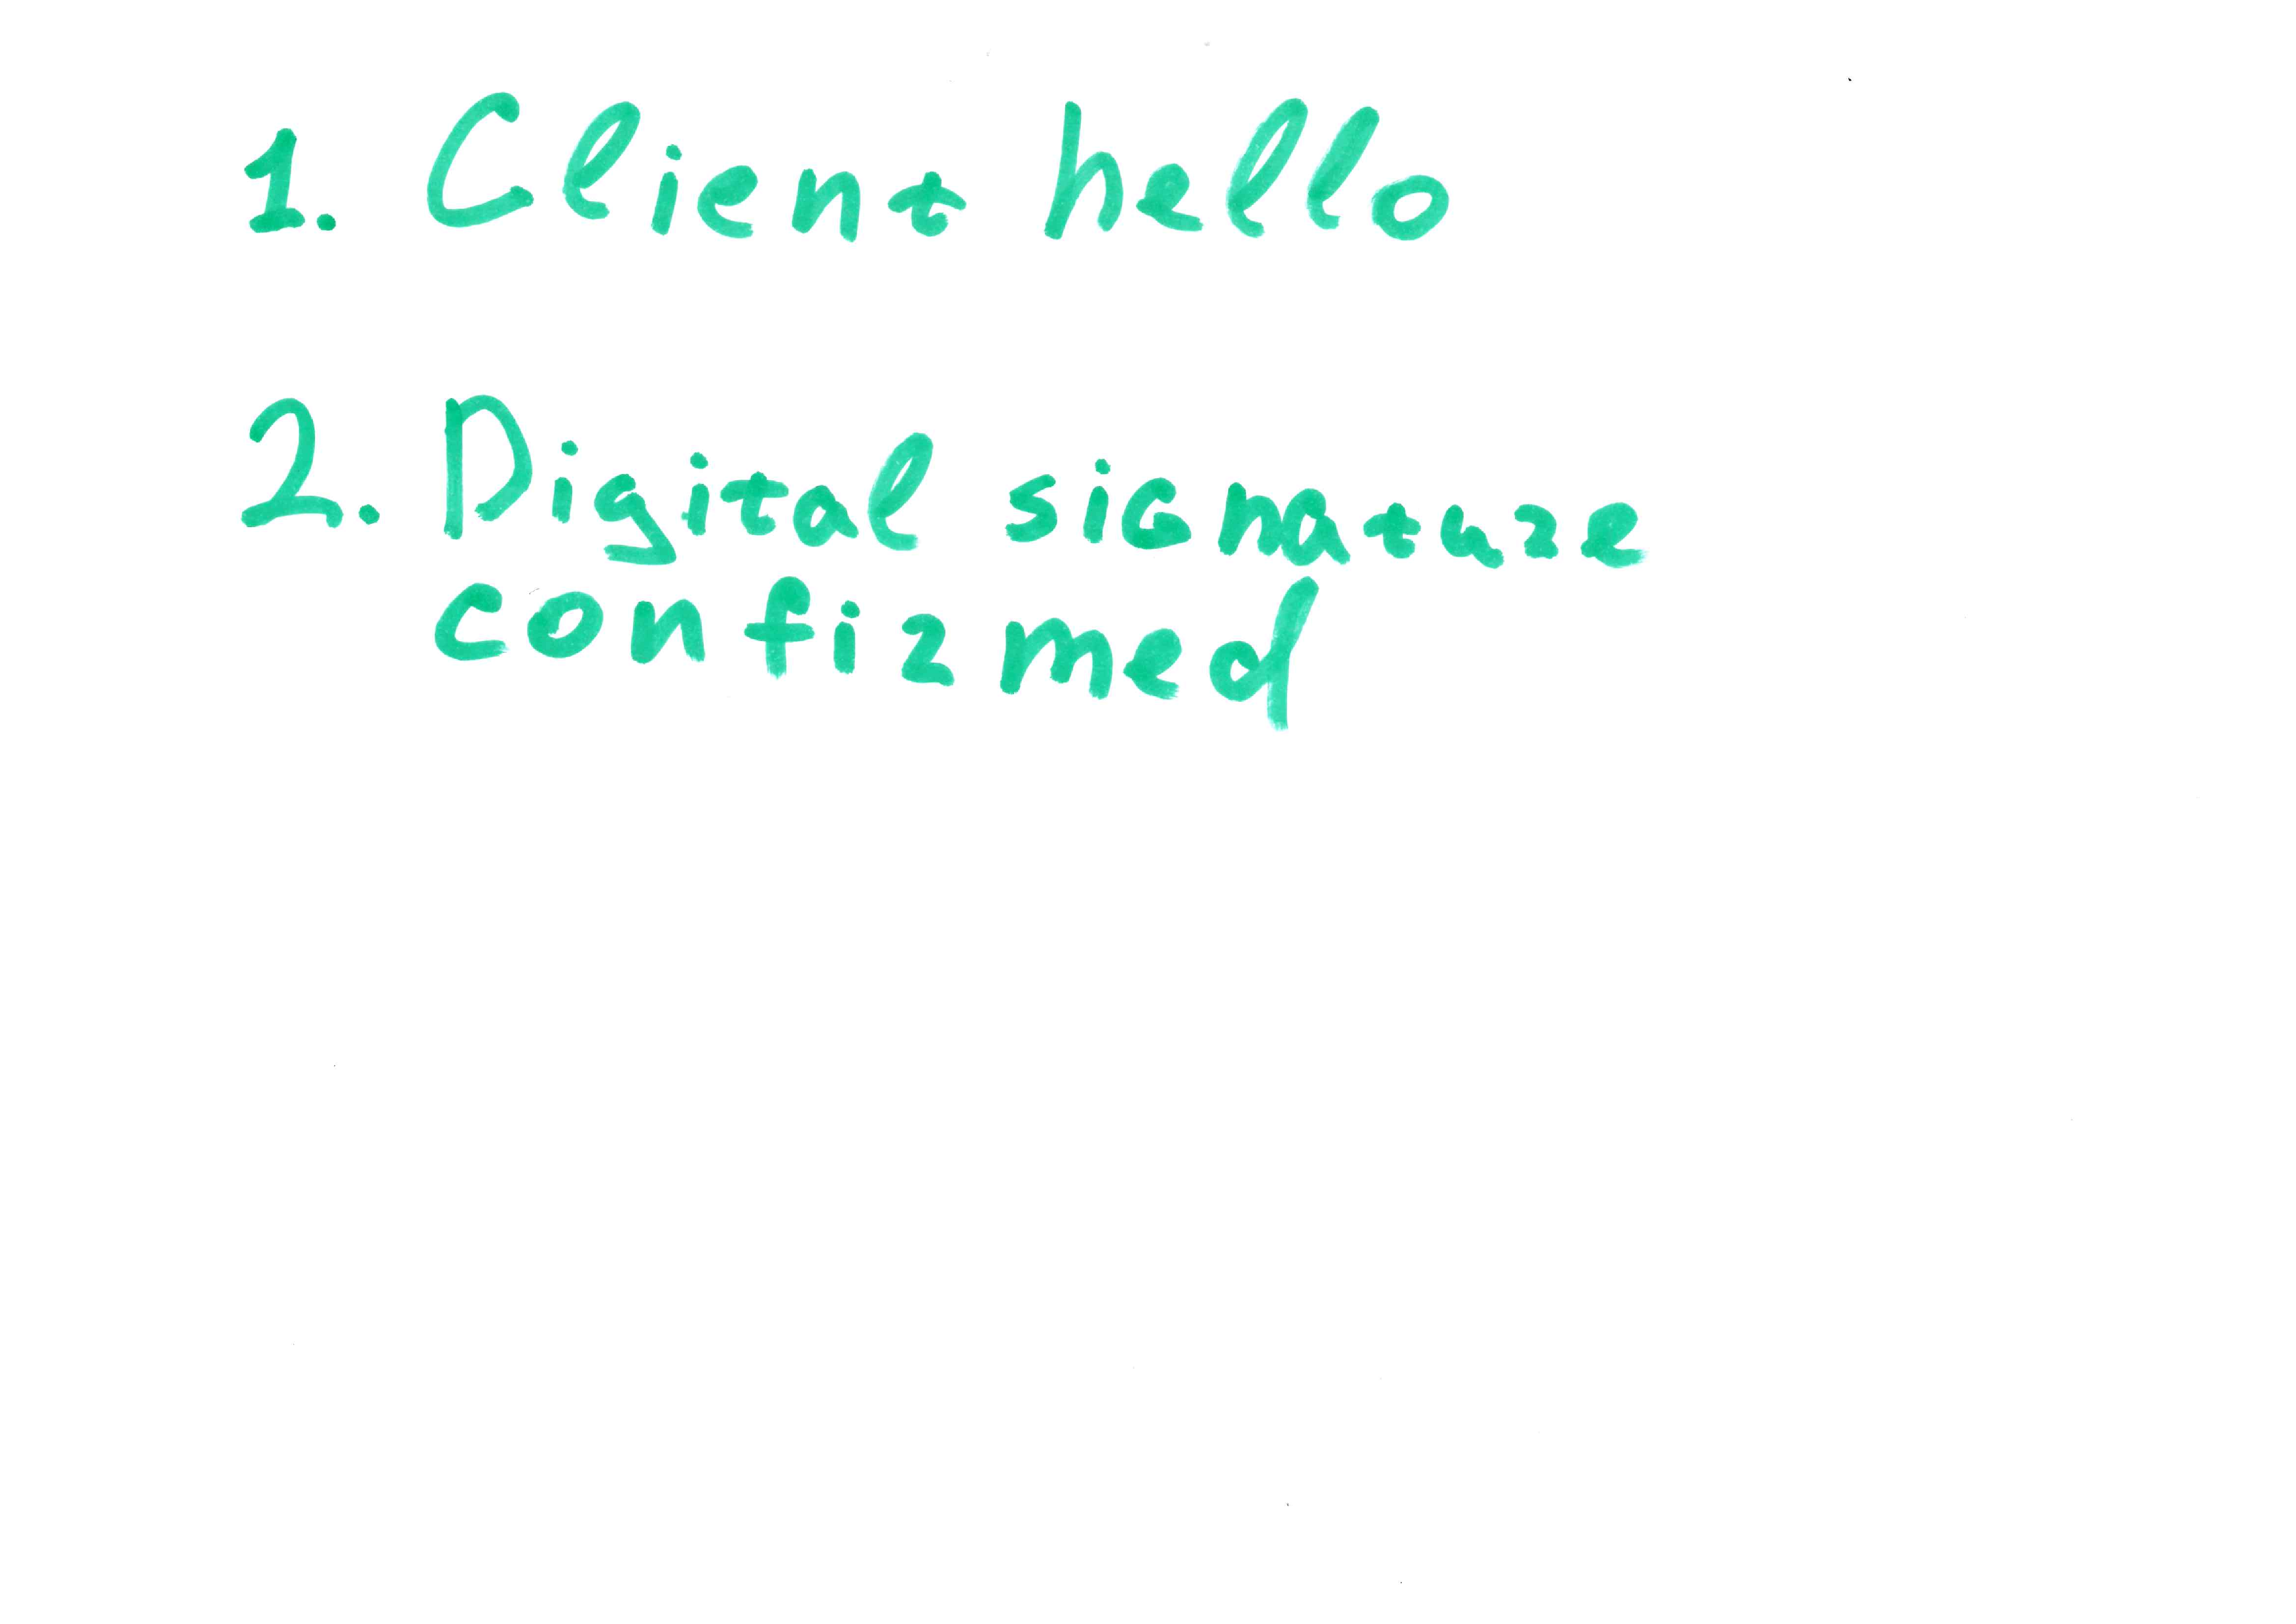 1. Client hello
2. Digital signature
confirmed